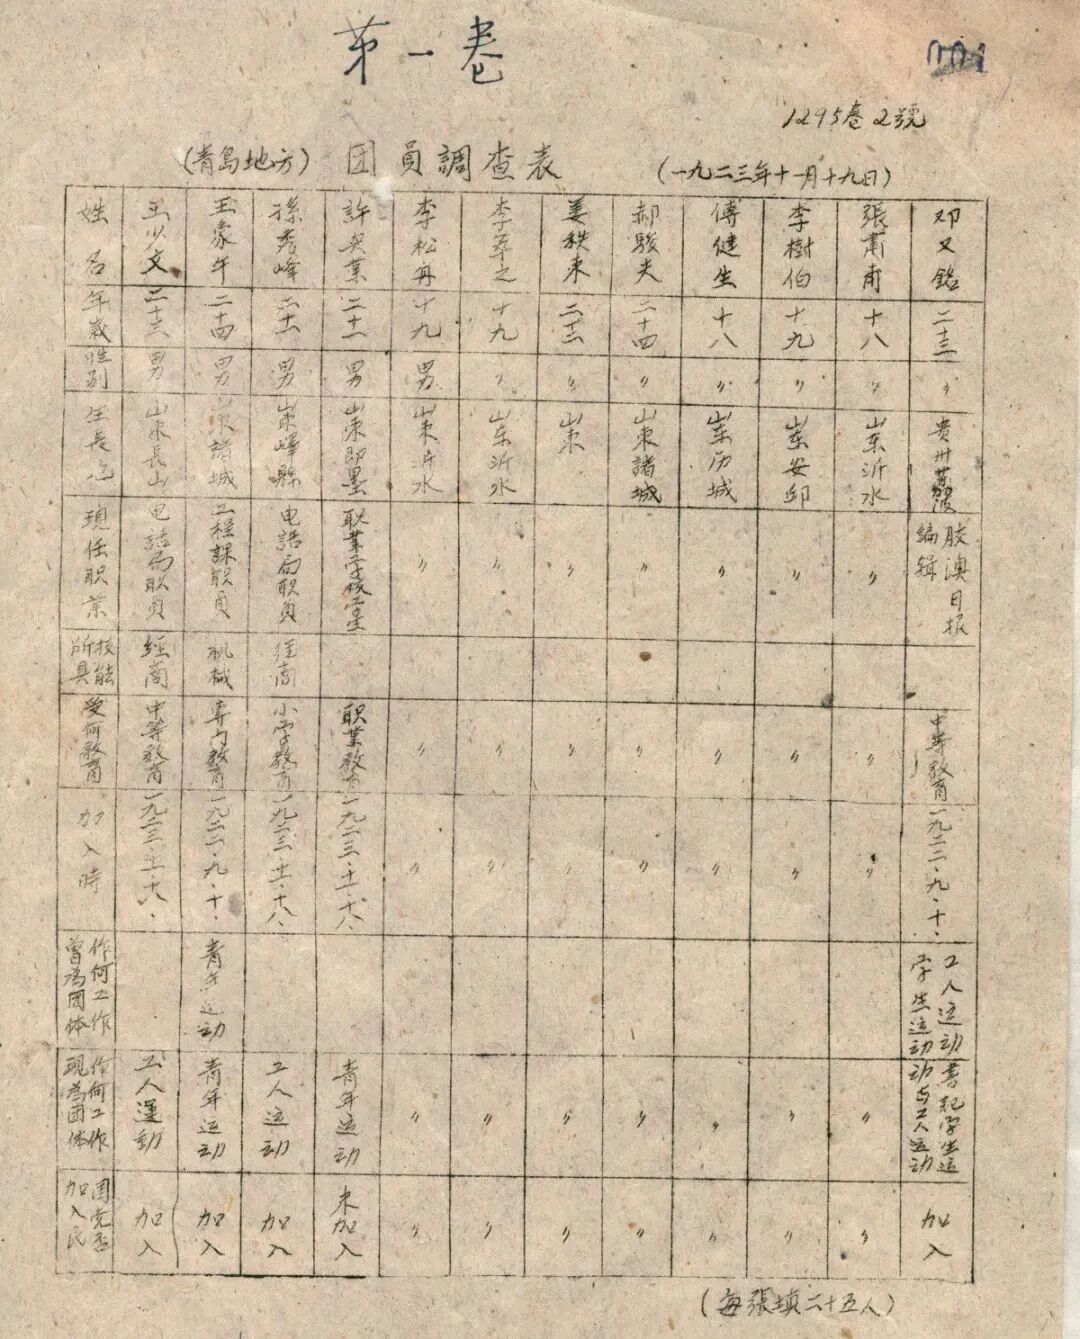 第一卷
001
1295卷2號
(青島地方) 团員調查表 (一九二三年十一月十九日)
姓名 王少文 王象午 孫秀峰 許興業 李松舟 李萃之 姜秩東 郝駿夫 傅健生 李樹伯 張肅甫 邓又銘
年歲 二十三 二十四 二十一 二十一 十九 十九 二十三 二十四 十八 十九 十八 二十三
性别 男 男 男 男 男 〃 〃 〃 〃 〃 〃 〃
生長地 山東長山 山东諸城 山東嶧縣 山東即墨 山東沂水 山东沂水 山東 山東諸城 山东历城 山东安邱 山东沂水 贵州荔波
現任职業 电話局职員 工程課职員 电話局职員 职業学校学生 〃 〃 〃 〃 〃 〃 〃 胶澳日报编辑
所具技能 經商 机械 經商
受何教育 中等教育 專门教育 小学教育 职業教育 〃 〃 〃 〃 〃 〃 〃 中等教育
加入時 一九二三·十一·十八· 一九二二·九·十· 一九二三·十一·十八· 一九二三·十一·十八 〃 〃 〃 〃 〃 〃 〃 一九二二·九·十·
曾為团体作何工作 青年运动 工人运动学生运动
現為团体作何工作 工人運動 青年运动 工人运动 青年运动 〃 〃 〃 〃 〃 〃 〃 学生运动与工人运动
加入民国党否 加入 加入 加入 未加入 〃 〃 〃 〃 〃 〃 〃 加入
(每張填二十五人)